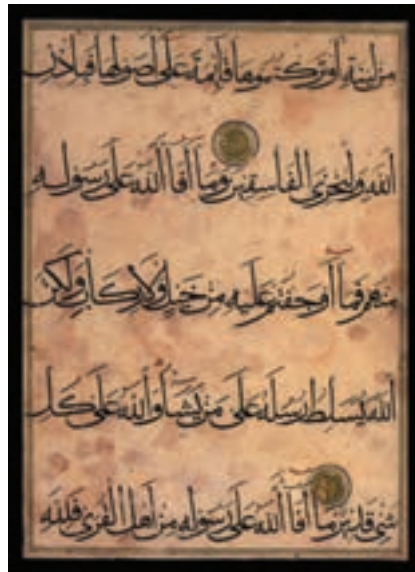 من لينة أو تركتموها قائمة على أصولها فبإذن
الله وليخزي الفاسقين وما أفاء الله على رسوله
منهم فما أوجفتم عليه من خيل ولا ركاب ولكن
الله يسلط رسله على من يشاء والله على كل
شيء قدير ما أفاء الله على رسوله من أهل القرى فلله